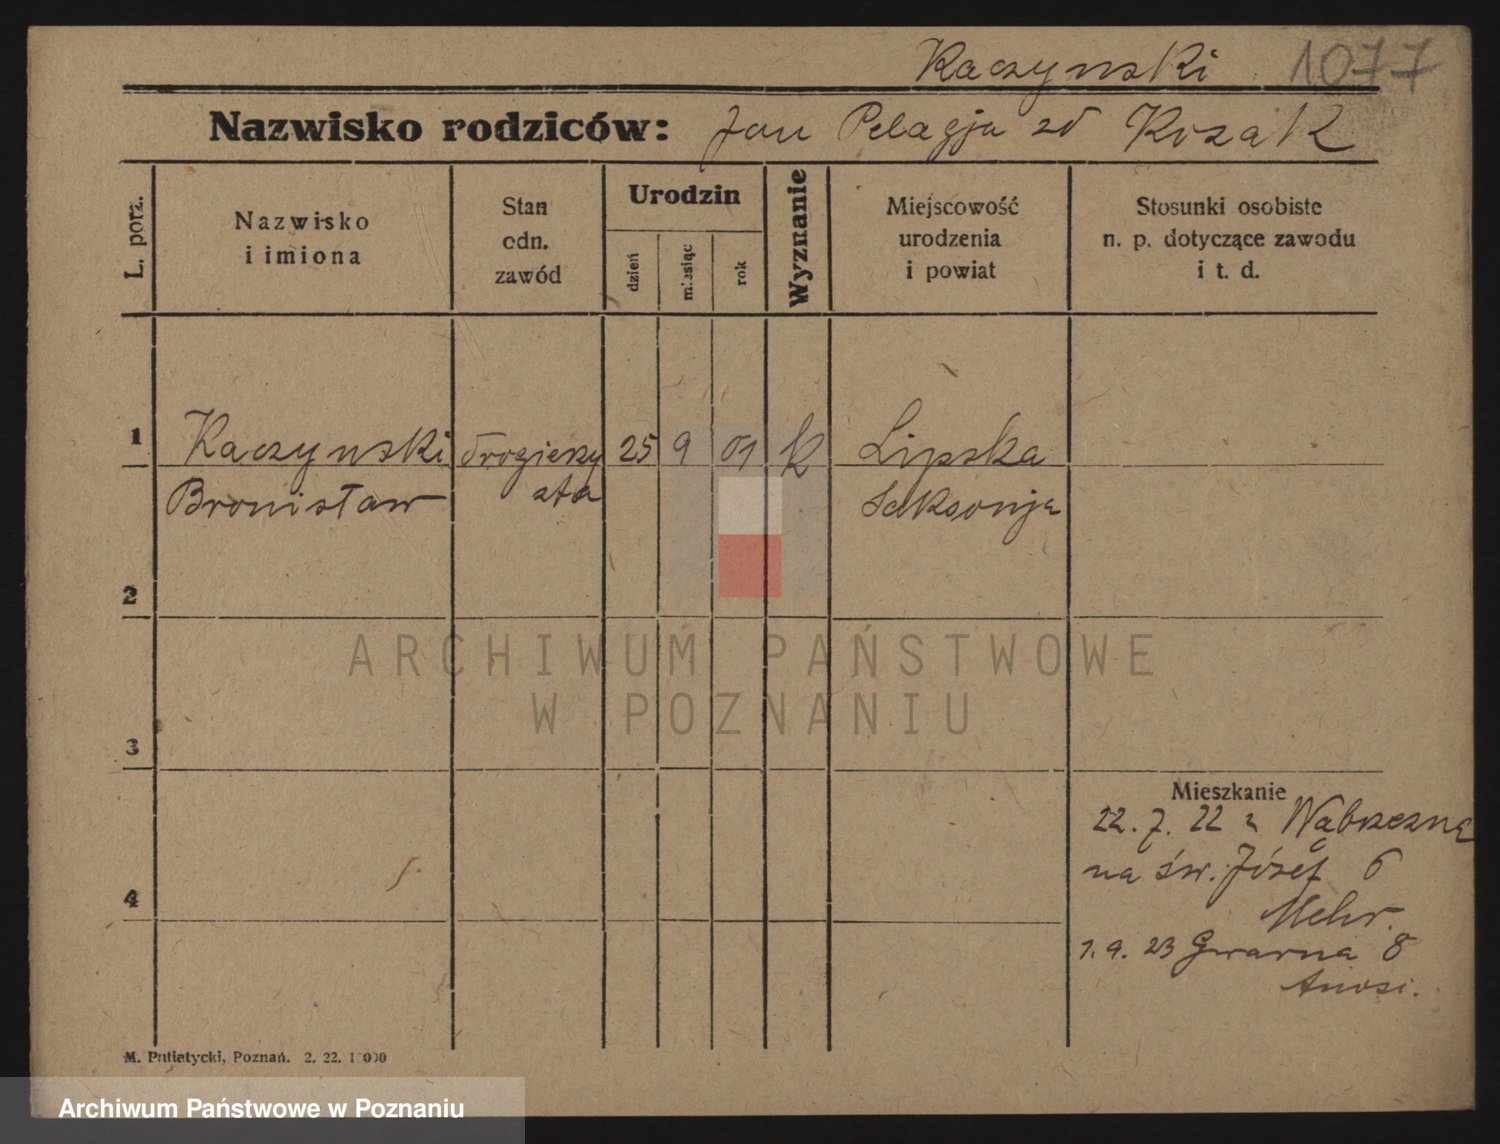 Kaczynski 1077
Nazwisko rodziców: Jan Pelagja zd Kozak
L. porz.
Nazwisko
i imiona
Stan
odn.
zawód
Urodzin
dzień
miesiąc
rok
Wyznanie
Miejscowość
urodzenia
i powiat
Stosunki osobiste
n. p. dotyczące zawodu
i t. d.
1 Kaczynski drogierzy 25 9 01 k Lipska
Bronisław sta Saksonja
2
ARCHIWUM PAŃSTWOWE
W POZNANIU
3
Mieszkanie
22. 7. 22 z Wąbrzezna
na św. Józef 6
4
1. 9. 23 Gwarna 8
M. Putiatycki, Poznań. 2. 22.
Archiwum Państwowe w Poznaniu